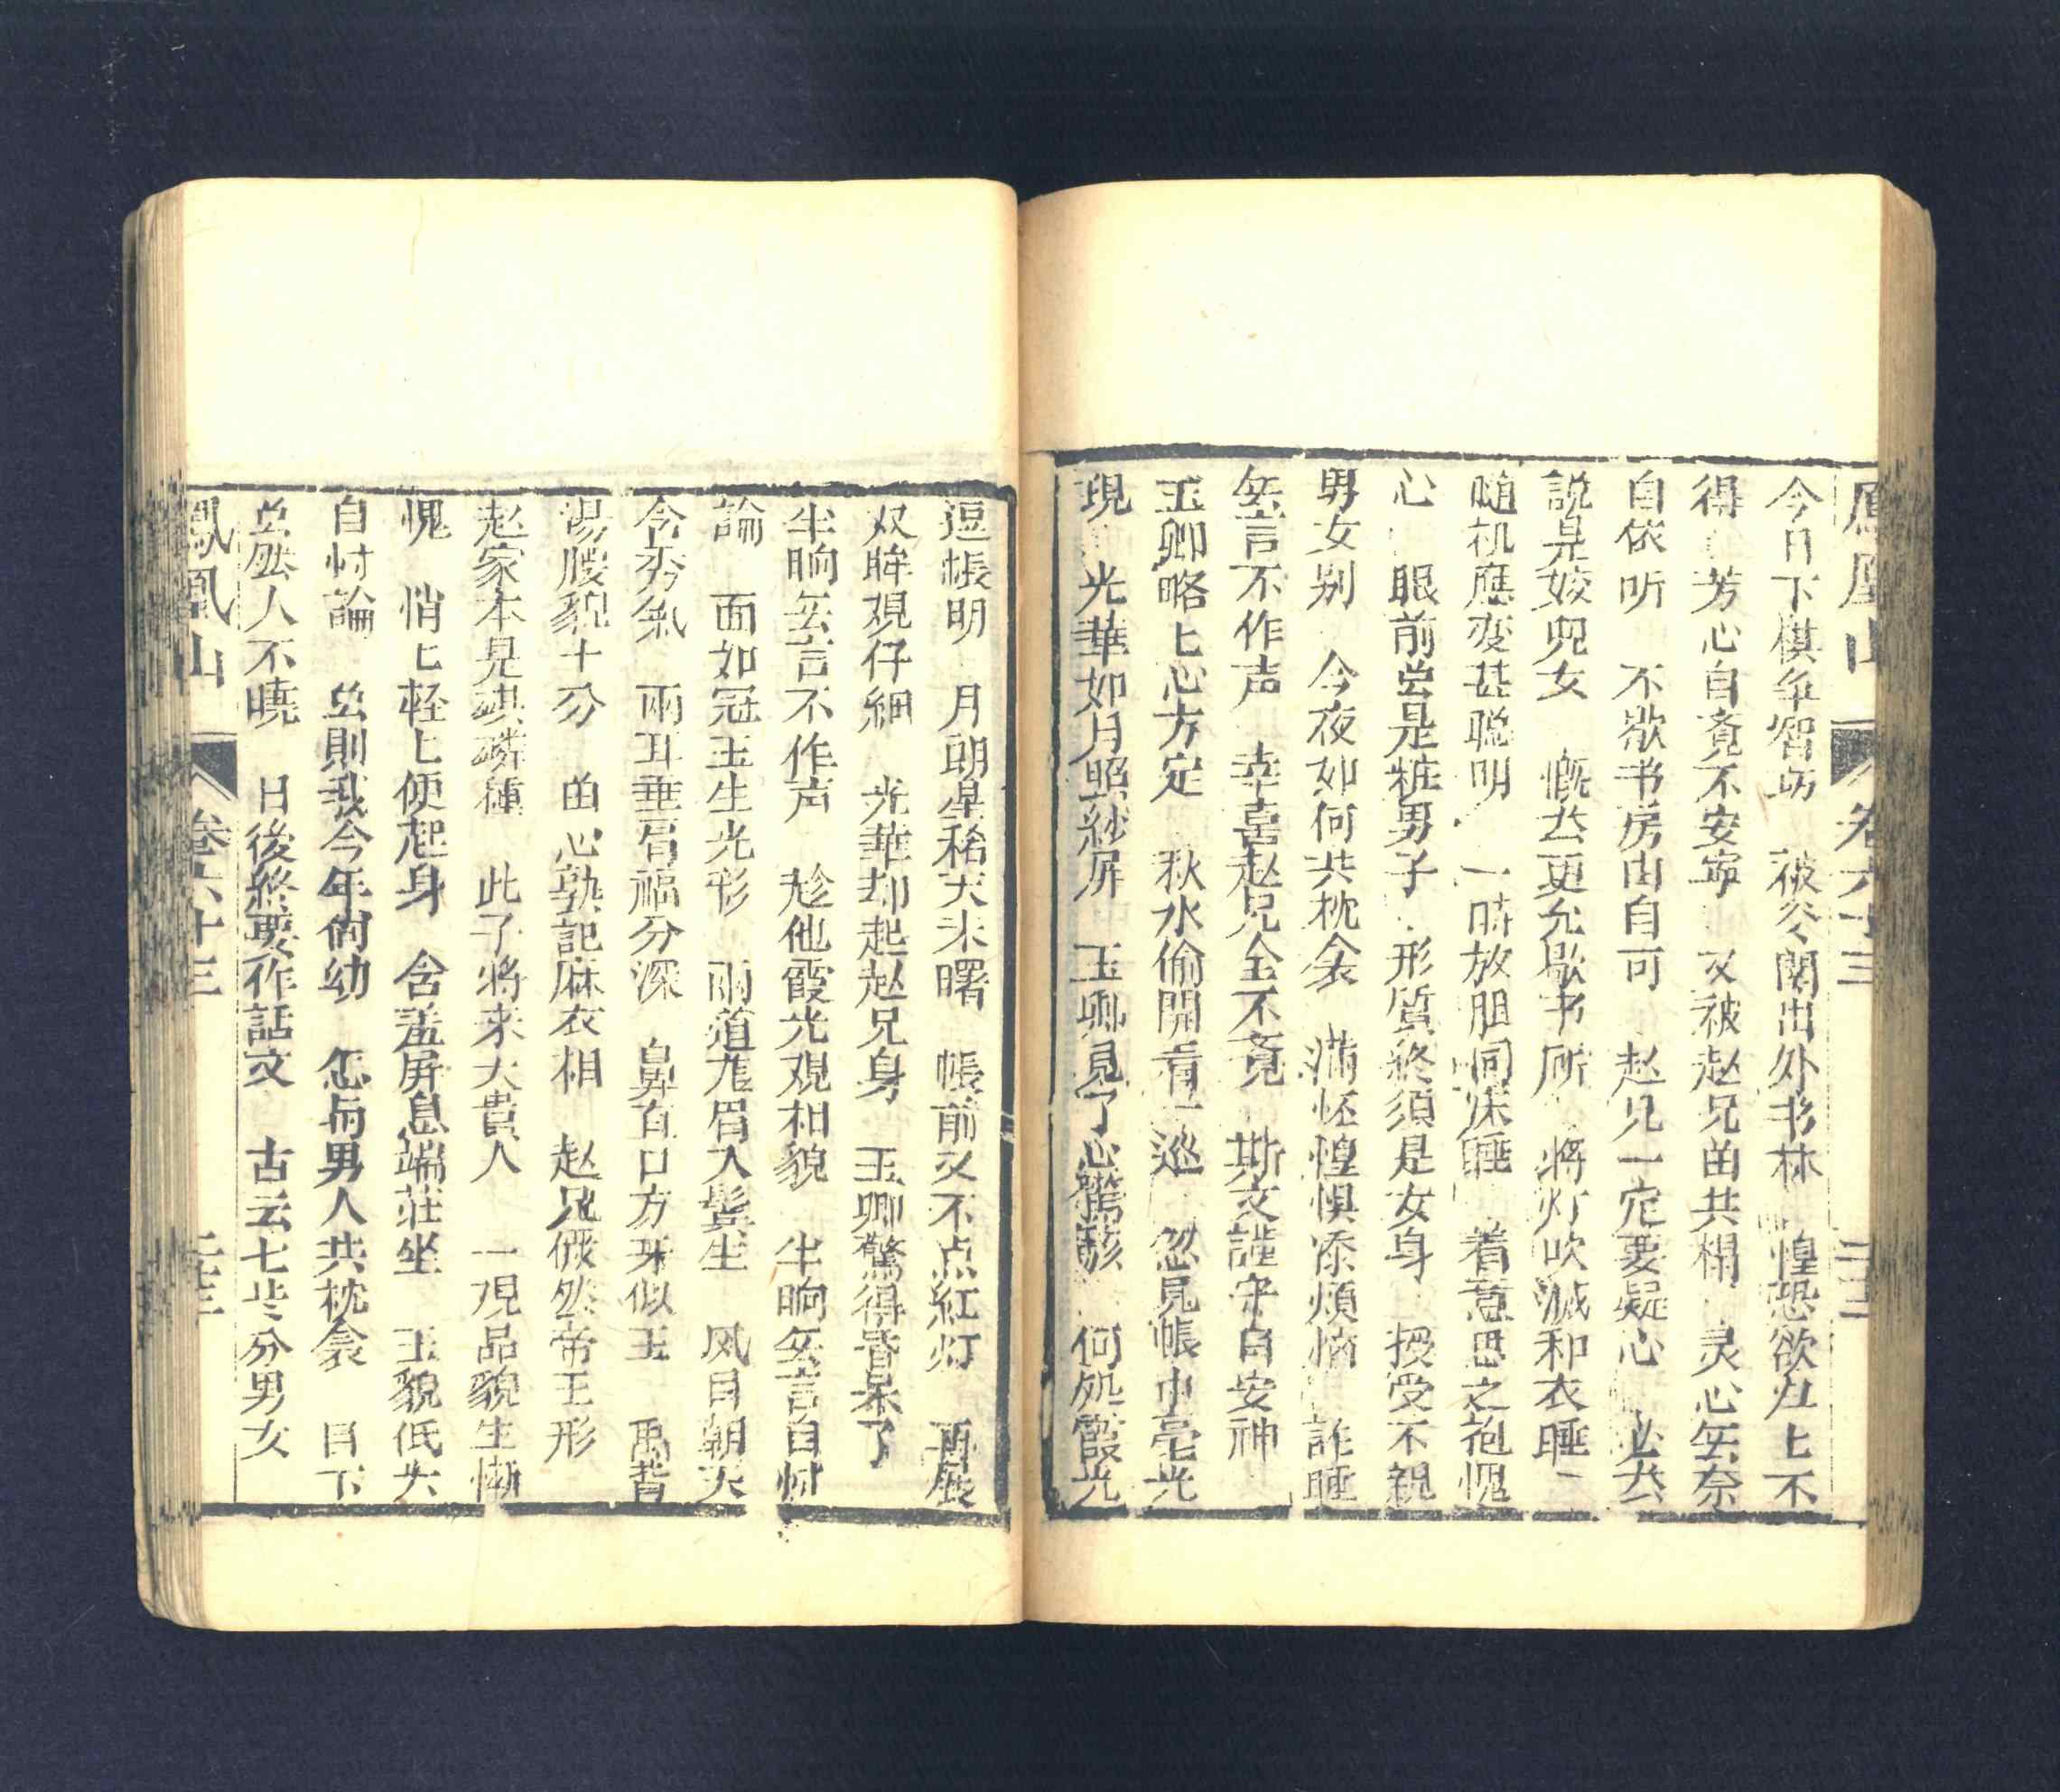 鳳凰山 卷六十三 二十三
今日下棋争智巧 被父関出外书林 惶恐欲处上不
得 芳心自竟不安寧 又被赵兄苗共榻 灵心侌奈
自依听 不欲书房由自可 赵兄一定要疑心 必去
説是姣児女 慨去更允歇书所 將灯吹滅和衣睡
随机應变甚聪明 一時放胆同床睡 着意思之袍愧
心 眼前尝是粧男子 形質終須是女身 授受不親
男女别 今夜如何共枕衾 滿怀惶惧添煩惱 詐睡
侌言不作声 幸喜赵兄全不竟 斯文謹守自安神
玉卿略上心方定 秋水偷開看一巡 忽見帳中毫光
現 光華如月照紗屏 玉卿見了心驚駭 何処霞光
逗帳明 月朗星稀天未曙 帳前又不点紅灯 再展
双眸观仔細 光華却起赵兄身 玉卿驚得昏呆了
半晌侌言不作声 趁他霞光观相貌 半晌侌言自忖
論 面如冠玉生光彩 兩道九長眉入鬓生 凤目朝天
含秀氣 兩耳垂肩福分深 鼻直口方珠似玉 禹背
湯腰貌十分 苗心熟記麻衣相 赵兄儼然帝王形
赵家本是琪磷種 此子將来大貴人 一观品貌生慚
愧 悄上輕上便起身 含羞屏息端莊坐 玉貌低头
自忖論 虽則我今年尚幼 怎与男人共枕衾 目下
虽然人不曉 日後終要作話文 古云七岁分男女
鳳凰山 卷六十三 二十三